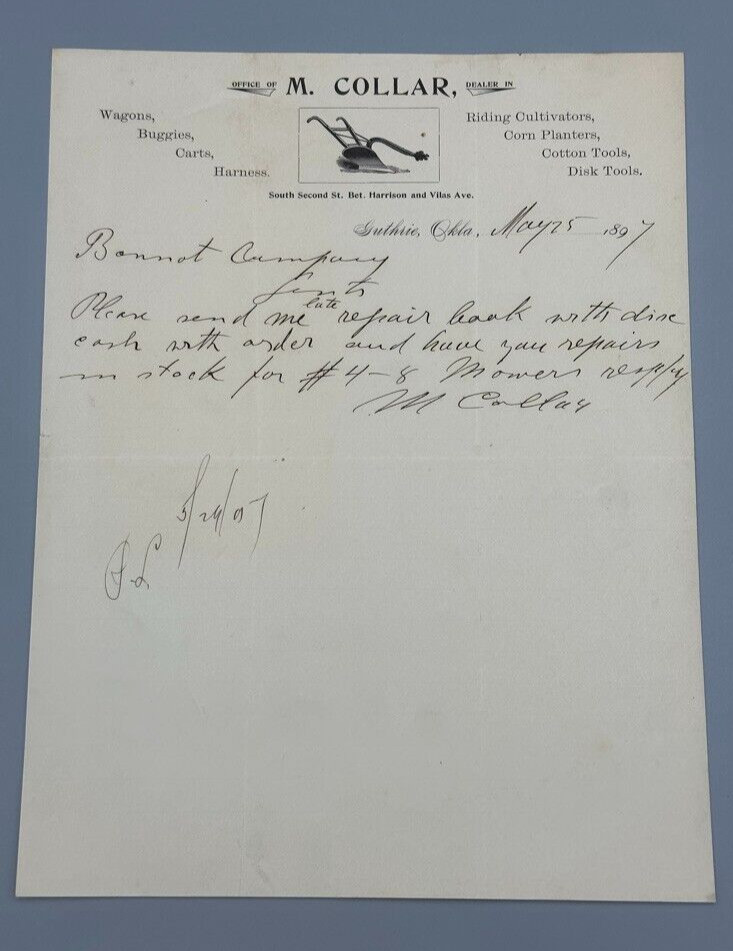 OFFICE OF M. COLLAR, DEALER IN
Wagons,
Buggies,
Carts,
Harness.
Riding Cultivators,
Corn Planters,
Cotton Tools,
Disk Tools.
South Second St. Bet. Harrison and Vilas Ave.
Guthrie, Okla., May 25 1897
Bonnot Company
Gents
Please send me late repair book with disc
cash with order and have you repairs
in stock for #4-8 Mowers resply
M Collar